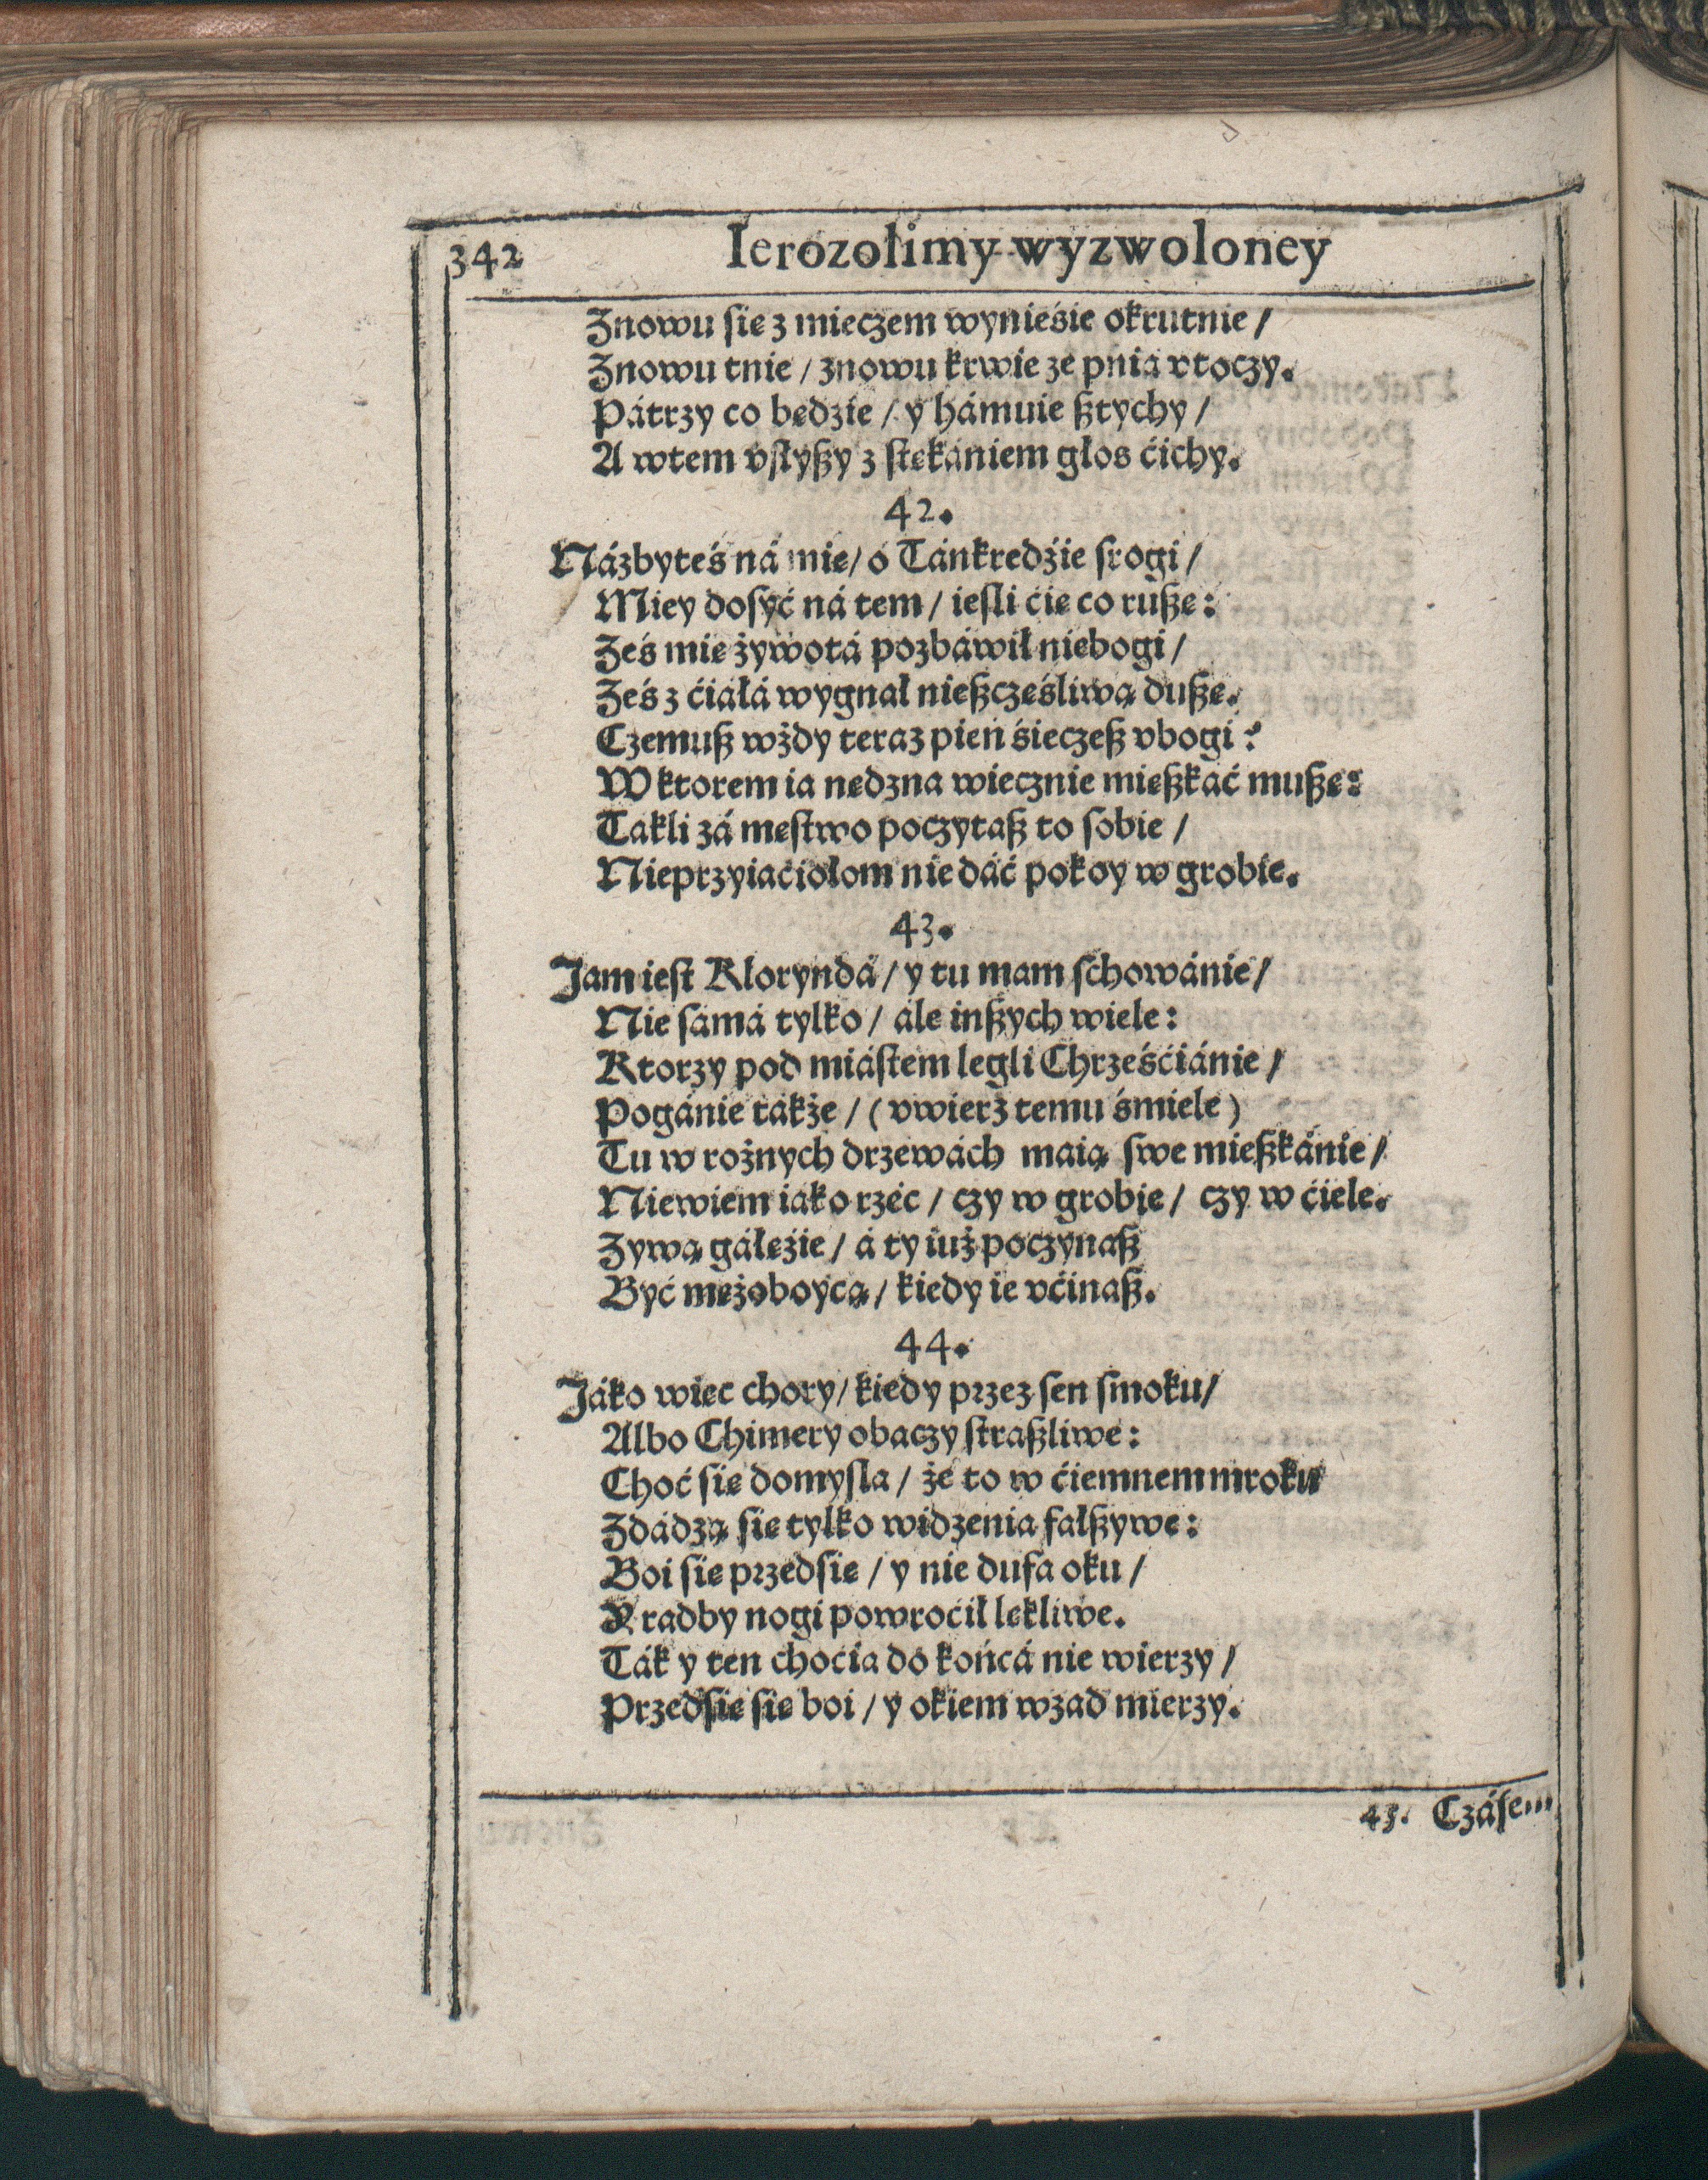 342 Ierozolimy wyzwoloney
Znowu się z mieczem wynieśie okrutnie /
Znowu tnie / znowu krwie ze pnia vtoczy.
Pátrzy co będzie / y hámuie sztychy /
A wtem vsłyszy z stękániem głos ćichy.
42.
Názbyteś ná mię / o Tánkredźie srogi /
Miey dosyć ná tem / iesli ćię co ruszę:
Żeś mię żywotá pozbáwił niebogi /
Żeś z ćiáłá wygnał nieszczęśliwą duszę.
Czemusz wżdy teraz pień śieczesz vbogi?
W ktorem ia nędzna wiecznie mieszkać muszę:
Takli zá męstwo poczytasz to sobie /
Nieprzyiaćiołom nie dáć pokoy w grobie.
43.
Jam iest Klorynda / y tu mam schowánie /
Nie sámá tylko / ále inszych wiele:
Ktorzy pod miástem legli Chrześćiánie /
Pogánie tákże / (vwierz temu śmiele)
Tu w rożnych drzewách maią swe mieszkánie /
Niewiem iáko rzéc / czy w grobie / czy w ćiele.
Żywą gáłęźie / á ty iuż poczynasz
Być mężoboycą / kiedy ie vćinasz.
44.
Jáko więc chory / kiedy przez sen smoku /
Albo Chimery obaczy straszliwe:
Choć się domysla / że to w ćiemnem mroku
Zdádzą się tylko widzenia fałszywe:
Boi się przedsię / y nie dufa oku /
Y radby nogi powroćił lękliwe.
Ták y ten choćia do końcá nie wierzy /
Przedsię się boi / y okiem wzad mierzy.
45. Czásem